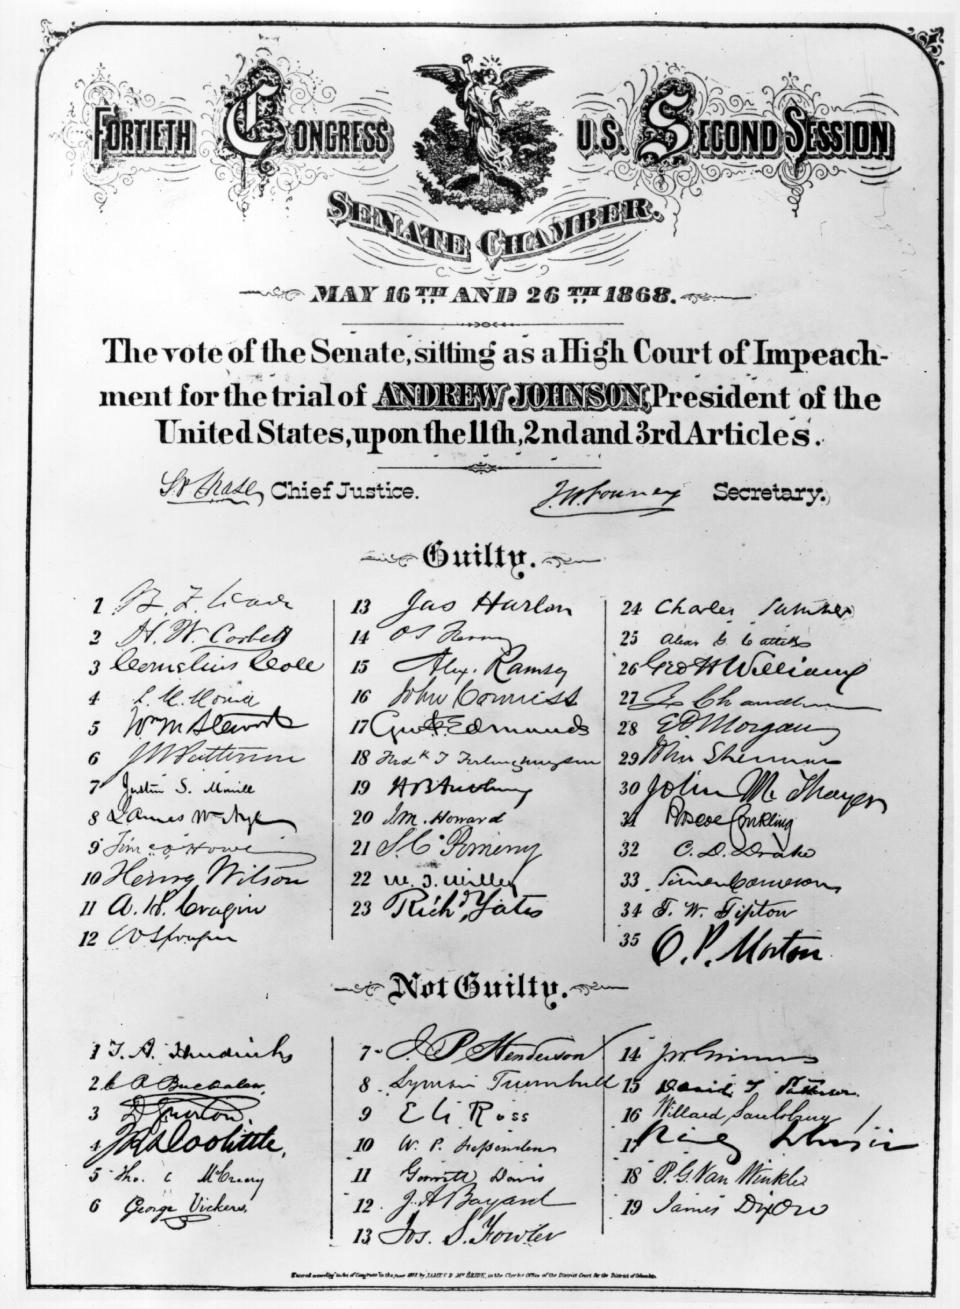 FORTIETH CONGRESS U.S. SECOND SESSION
SENATE CHAMBER.
MAY 16TH AND 26TH 1868.
The vote of the Senate, sitting as a High Court of Impeach-
ment for the trial of ANDREW JOHNSON, President of the
United States, upon the 11th, 2nd and 3rd Articles.
S P Chase, Chief Justice.
J. W. Forney Secretary.
Guilty.
1 B. F. Wade
2 H. W. Corbett
3 Cornelius Cole
4
5 Wm M Stewart
6 J W Patterson
7 Justin S. Morrill
8 James W Nye
9 Timo O Howe
10 Henry Wilson
11 A. H. Cragin
12 W Sprague
13 Jas Harlan
14 O S Ferry
15 Alex. Ramsey
16 John Conness
17 Geo F. Edmunds
18 Fredk T Frelinghuysen
19 H B Anthony
20 J. M. Howard
21 S. C. Pomeroy
22 W. T. Willey
23 Richd Yates
24 Charles Sumner
25 Alex G Cattell
26 Geo H Williams
27 Z Chandler
28 E D. Morgan
29 John Sherman
30 John M Thayer
31 Roscoe Conkling
32 C. D. Drake
33 Simon Cameron
34 T. W. Tipton
35 O. P. Morton
Not Guilty.
1 T. A. Hendricks
2 C R Buckalew
3 D S Norton
4 J R Doolittle.
5 Tho. C McCreery
6 George Vickers.
7 J. B Henderson
8 Lyman Trumbull
9 E G Ross
10 W. P. Fessenden
11 Garrett Davis
12 J. A Bayard
13 Jos. S. Fowler
14 J W Grimes
15 David T Patterson
16 Willard Saulsbury
17 Reverdy Johnson
18 P. G. Van Winkle
19 James Dixon
Entered according to Act of Congress in the year 1868 by JAMES D. McBRIDE, in the Clerks Office of the District Court for the District of Columbia.